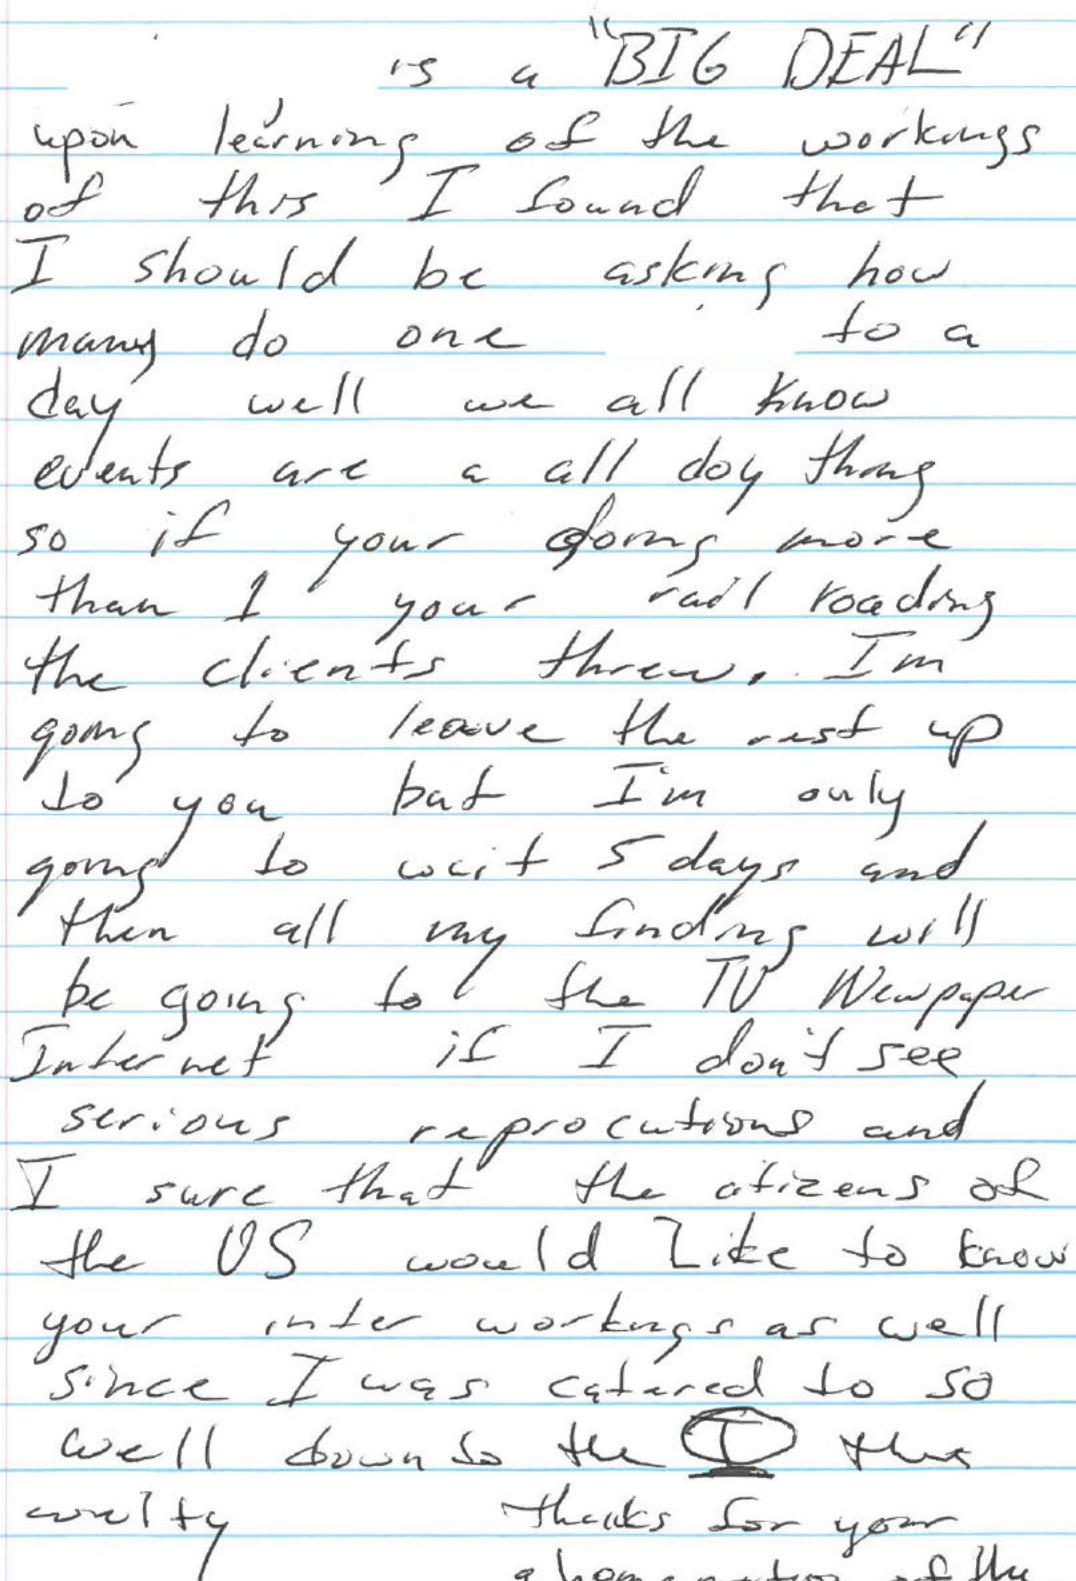 is a "BIG DEAL"
upon learning of the workings
of this I found that
I should be asking how
many do one to a
day well we all know
events are a all day thing
so if your doing more
than 1 your rail roading
the clients threw. I'm
going to leave the rest up
to you but I'm only
going to wait 5 days and
then all my finding will
be going to the TV Newpaper
Internet if I don't see
serious reprocutions and
I sure that the citizens of
the US would Like to know
your inter workings as well
since I was catered to so
well down to the I
thanks for your
of the